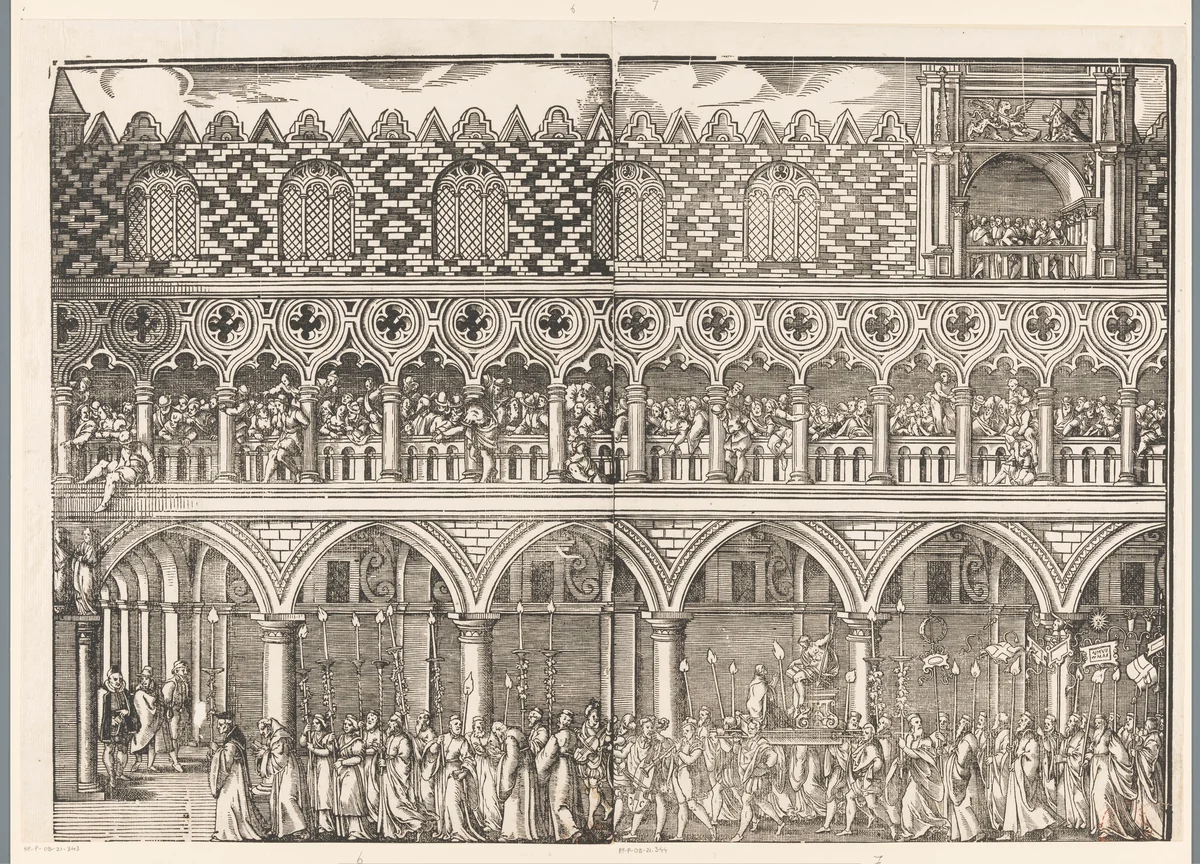 6 7
RP-P-OB-21.343
RP-P-OB-21.344
6 7